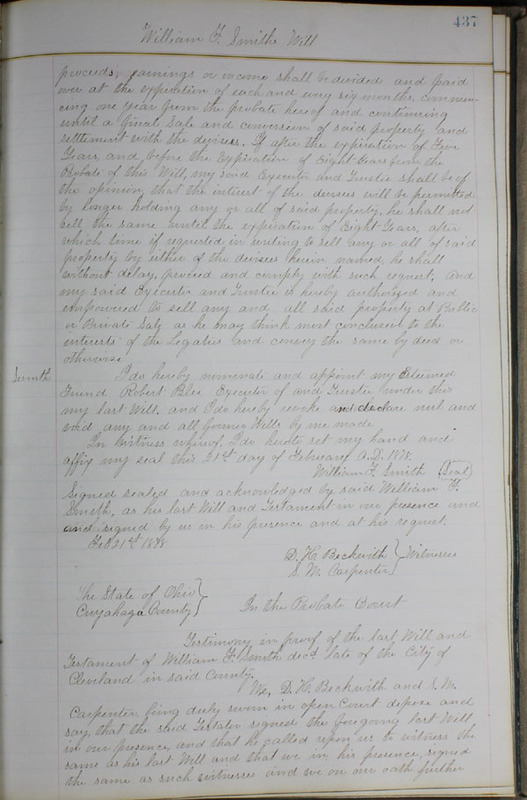 437
William F. Smiths Will
proceeds, earnings or income shall be divided and paid
over at the expiration of each and every six months, commen-
cing one year from the probate hereof and continuing
until a final sale and conversion of said property and
settlement with the devisees. If after the expiration of Five
Years, and before the expiration of Eight Years from the
Probate of this Will, my said Executor and Trustee shall be of
the opinion, that the interest of the devisees will be permitted
by longer holding any or all of said property, he shall not
sell the same until the expiration of Eight Years, after
which time if requested in writing to sell any or all of said
property by either of the devisees herein named, he shall
without delay, proceed and comply with such request, and
my said Executor and Trustee is hereby authorized and
empowered to sell any and all said property at Public
or Private Sale as he may think most conclusive to the
interests of the Legatees and convey the same by deed or
otherwise.
Seventh I do hereby nominate and appoint my Esteemed
Friend Robert Blee Executor of and Trustee under this
my last Will, and I do hereby revoke and declare null and
void any and all former Wills by me made.
In Witness whereof, I do hereto set my hand and
affix my seal this 21st day of February A.D. 1878.
William F. Smith (Seal)
Signed sealed and acknowledged by said William F.
Smith, as his last Will and Testament in our presence and
and signed by us in his presence and at his request.
Feb 21st 1878
D. H. Beckwith } Witnesses
S. M. Carpenter }
The State of Ohio }
Cuyahoga County } In the Probate Court
Testimony in proof of the last Will and
Testament of William F. Smith decd late of the City of
Cleveland in said County.
We, D. H. Beckwith and S. M.
Carpenter being duly sworn in open Court depose and
say, that the said Testator signed the foregoing last Will,
in our presence, and that he called upon us to witness the
same as his last Will and that we in his presence, signed
the same as such witnesses and we on our oath further